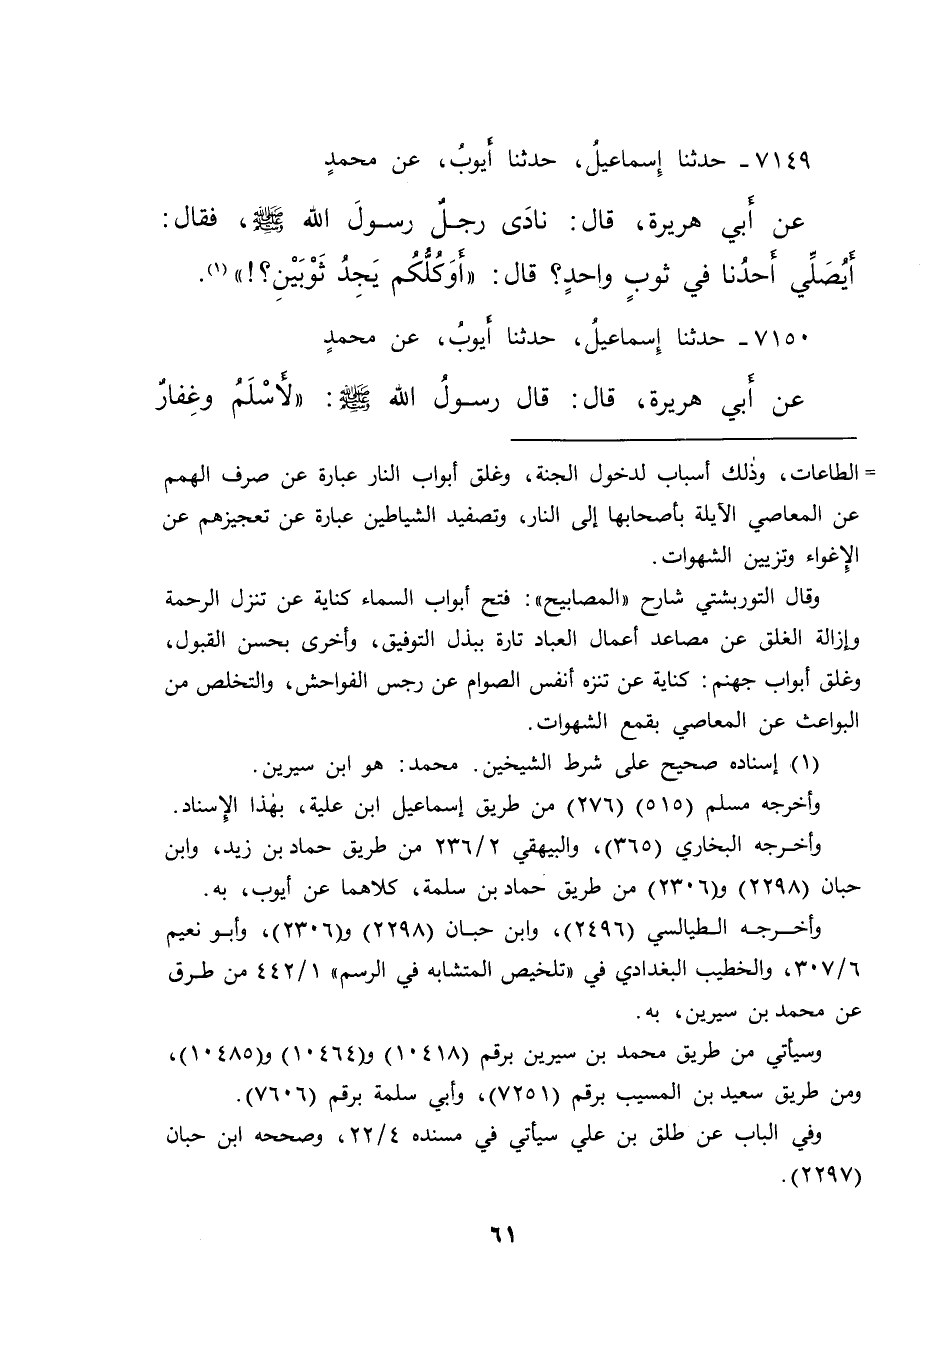 ٧١٤٩ـ حدثنا إسماعيلُ، حدثنا أَيوبُ، عن محمدٍ
عن أَبي هريرة، قال: نادَى رجلٌ رسولَ الله ﷺ، فقال:
أَيُصَلِّي أَحدُنا في ثوبٍ واحدٍ؟ قال: «أَوَكُلُّكُم يَجِدُ ثَوْبَيْنِ؟!»(١).
٧١٥٠ـ حدثنا إسماعيلُ، حدثنا أَيوبُ، عن محمدٍ
عن أَبي هريرة، قال: قال رسولُ الله ﷺ: «لَأَسْلَمُ وغِفارٌ
= الطاعات، وذٰلك أسباب لدخول الجنة، وغلق أبواب النار عبارة عن صرف الهمم
عن المعاصي الآيلة بأصحابها إلى النار، وتصفيد الشياطين عبارة عن تعجيزهم عن
الإغواء وتزيين الشهوات.
وقال التوربشتي شارح «المصابيح»: فتح أبواب السماء كناية عن تنزل الرحمة
وإزالة الغلق عن مصاعد أعمال العباد تارة ببذل التوفيق، وأخرى بحسن القبول،
وغلق أبواب جهنم: كناية عن تنزه أنفس الصوام عن رجس الفواحش، والتخلص من
البواعث عن المعاصي بقمع الشهوات.
(١) إسناده صحيح على شرط الشيخين. محمد: هو ابن سيرين.
وأخرجه مسلم (٥١٥) (٢٧٦) من طريق إسماعيل ابن علية، بهٰذا الإسناد.
وأخرجه البخاري (٣٦٥)، والبيهقي ٢٣٦/٢ من طريق حماد بن زيد، وابن
حبان (٢٢٩٨) و(٢٣٠٦) من طريق حماد بن سلمة، كلاهما عن أيوب، به.
وأخرجه الطيالسي (٢٤٩٦)، وابن حبان (٢٢٩٨) و(٢٣٠٦)، وأبو نعيم
٣٠٧/٦، والخطيب البغدادي في «تلخيص المتشابه في الرسم» ٤٤٢/١ من طرق
عن محمد بن سيرين، به.
وسيأتي من طريق محمد بن سيرين برقم (١٠٤١٨) و(١٠٤٦٤) و(١٠٤٨٥)،
ومن طريق سعيد بن المسيب برقم (٧٢٥١)، وأبي سلمة برقم (٧٦٠٦).
وفي الباب عن طلق بن علي سيأتي في مسنده ٢٢/٤، وصححه ابن حبان
(٢٢٩٧).
٦١